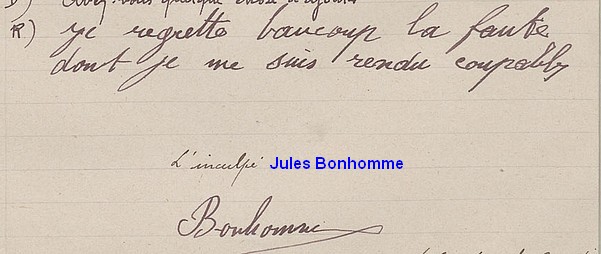 D) Avez-vous quelque chose à ajouter
R) je regrette baucoup la faute
dont je me suis rendu coupable
L'inculpé Jules Bonhomme
Bonhomme